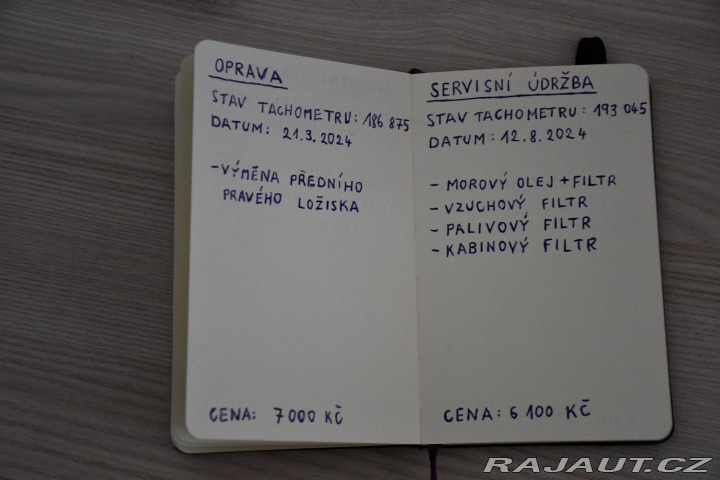 OPRAVA
STAV TACHOMETRU: 186 875
DATUM: 21.3.2024
- VÝMĚNA PŘEDNÍHO
PRAVÉHO LOŽISKA
CENA: 7000 KČ
SERVISNÍ ÚDRŽBA
STAV TACHOMETRU: 193 045
DATUM: 12.8.2024
- MOROVÝ OLEJ + FILTR
- VZUCHOVÝ FILTR
- PALIVOVÝ FILTR
- KABINOVÝ FILTR
CENA: 6 100 KČ
RAJAUT.CZ